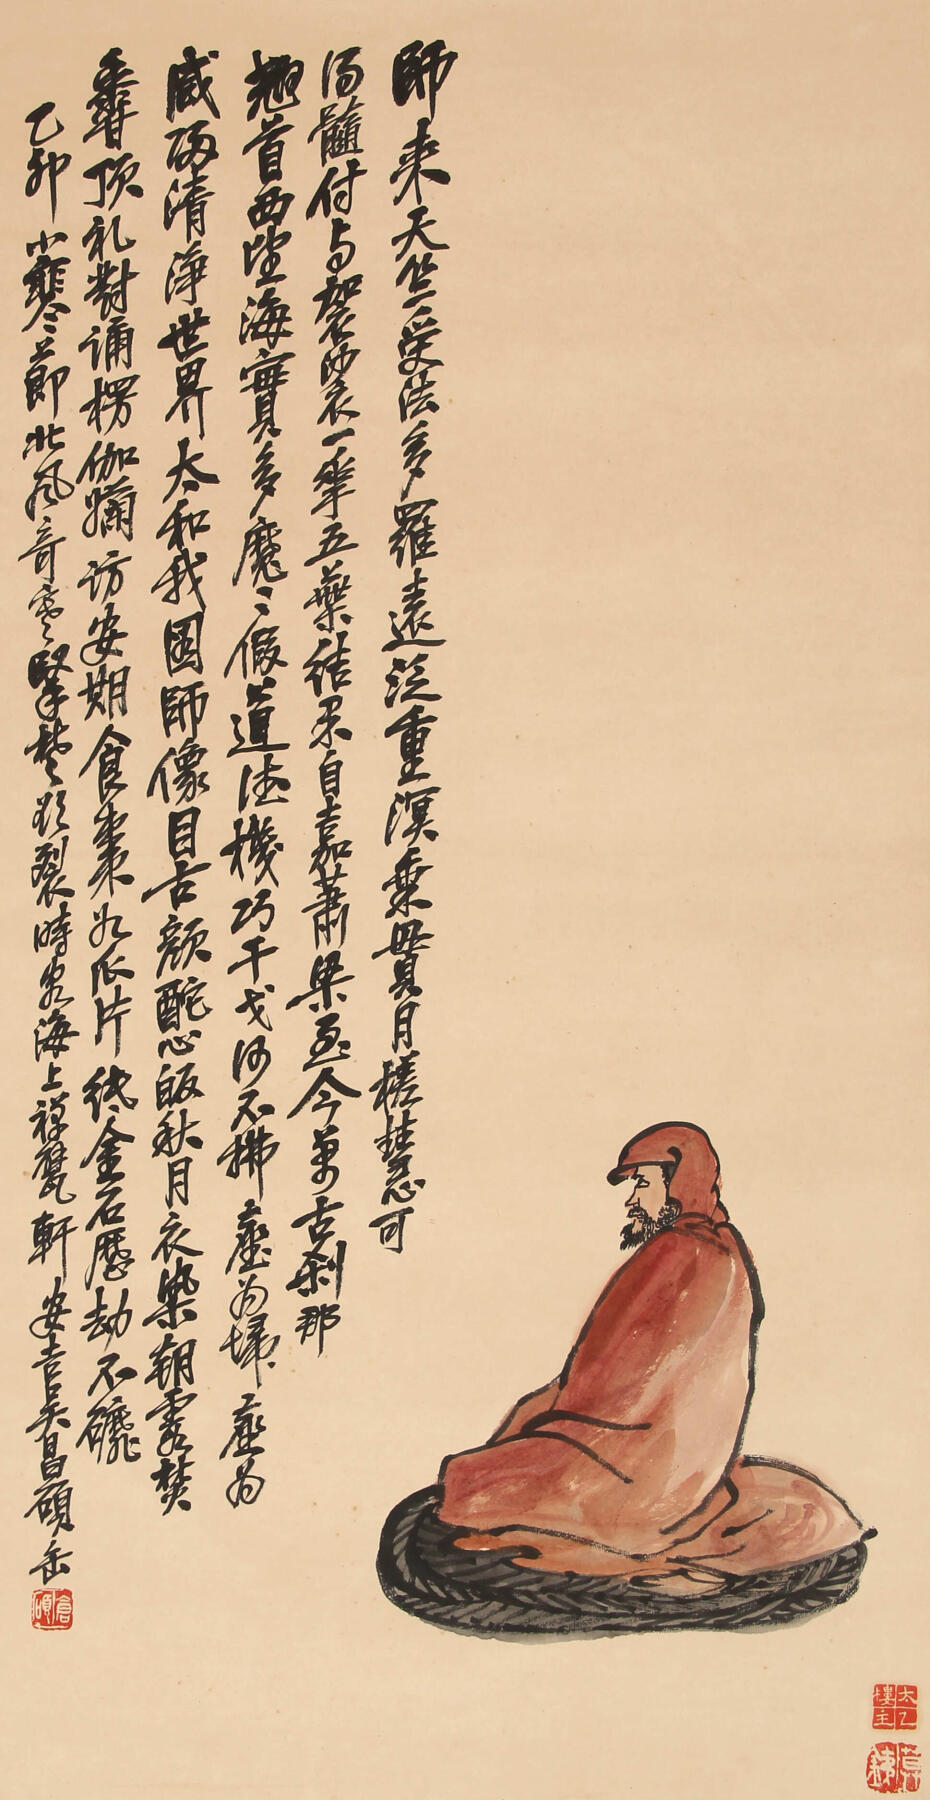 師来天竺受法多羅遠泛重溟乘貫月槎慧可
得髓付与袈裟衣一華五葉結果自嘉蕭梁至今万古剎那
翹首西望海寳多魔〻假道法機巧干戈何不拂塵为埽塵为
咸西清淨世界太和我圖師像目古顏酡心皈秋月衣染朝霞焚
香頂礼對誦楞伽嬾訪安期食棗如瓜片紙金石歷劫不磨
乙卯小寒節北風奇寒緊甃欲裂時客海上禪甓軒安吉吳昌碩缶
倉碩
太乙樓主